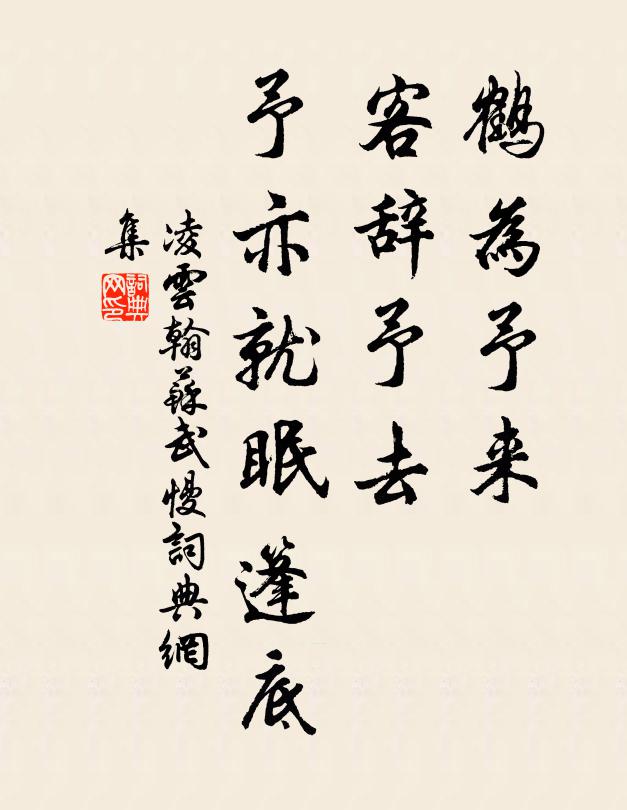 鶴為予来
客辞予去
予亦就眠篷底
凌雲翰蘇武慢詞典網
集
詞典
网印